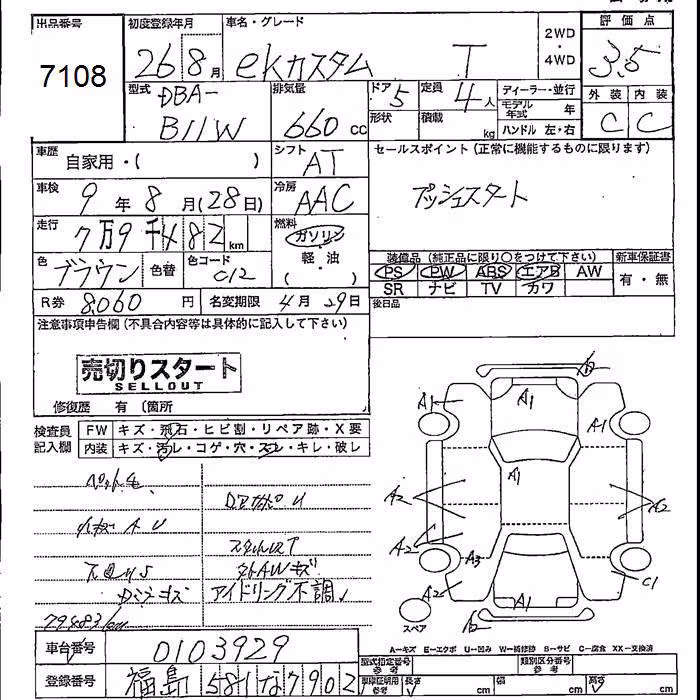 出品番号 初度登録年月 車名・グレード 評価点
7108 26 8月 eKカスタム T 2WD ・ 4WD 3.5
型式 DBA- B11W 排気量 660 cc ドア 5 定員 4人 ディーラー・並行
形状 積載 kg モデル年式 年
ハンドル 左・右
外装 内装
C C
車歴 自家用・( ) シフト AT
セールスポイント(正常に機能するものに限ります)
プッシュスタート
車検 9年 8月(28日) 冷房 AAC
走行 7万9千482 km 燃料 ガソリン
軽・油
( )
色 ブラウン 色替 色コード C12
装備品(純正品に限り○をつけて下さい) 新車保証書
PS PW ABS エアB AW 有・無
SR ナビ TV カワ
R券 8,060 円 名変期限 4月29日
後日品
注意事項申告欄(不具合内容等は具体的に記入して下さい)
売切りスタート
SELLOUT
修復歴 有 〔箇所
検査員記入欄 FW キズ・飛石・ヒビ割・リペア跡・X要
内装 キズ・汚レ・コゲ・穴・スレ・キレ・破レ
ペットモ
アイドリング不調
79483km
A1 A1 A1
A1
A2 A2
A2
A3
A2 A1 C1
スペア
A－キズ E－エクボ U－凹み W－補修跡 B－サビ C－腐食 XX－交換済
車台番号 0103929
型式指定番号 参考 類別区分番号 参考
登録番号 福島 581 な 7902
車庫証明用 参考 長さ cm 幅 cm 高さ cm